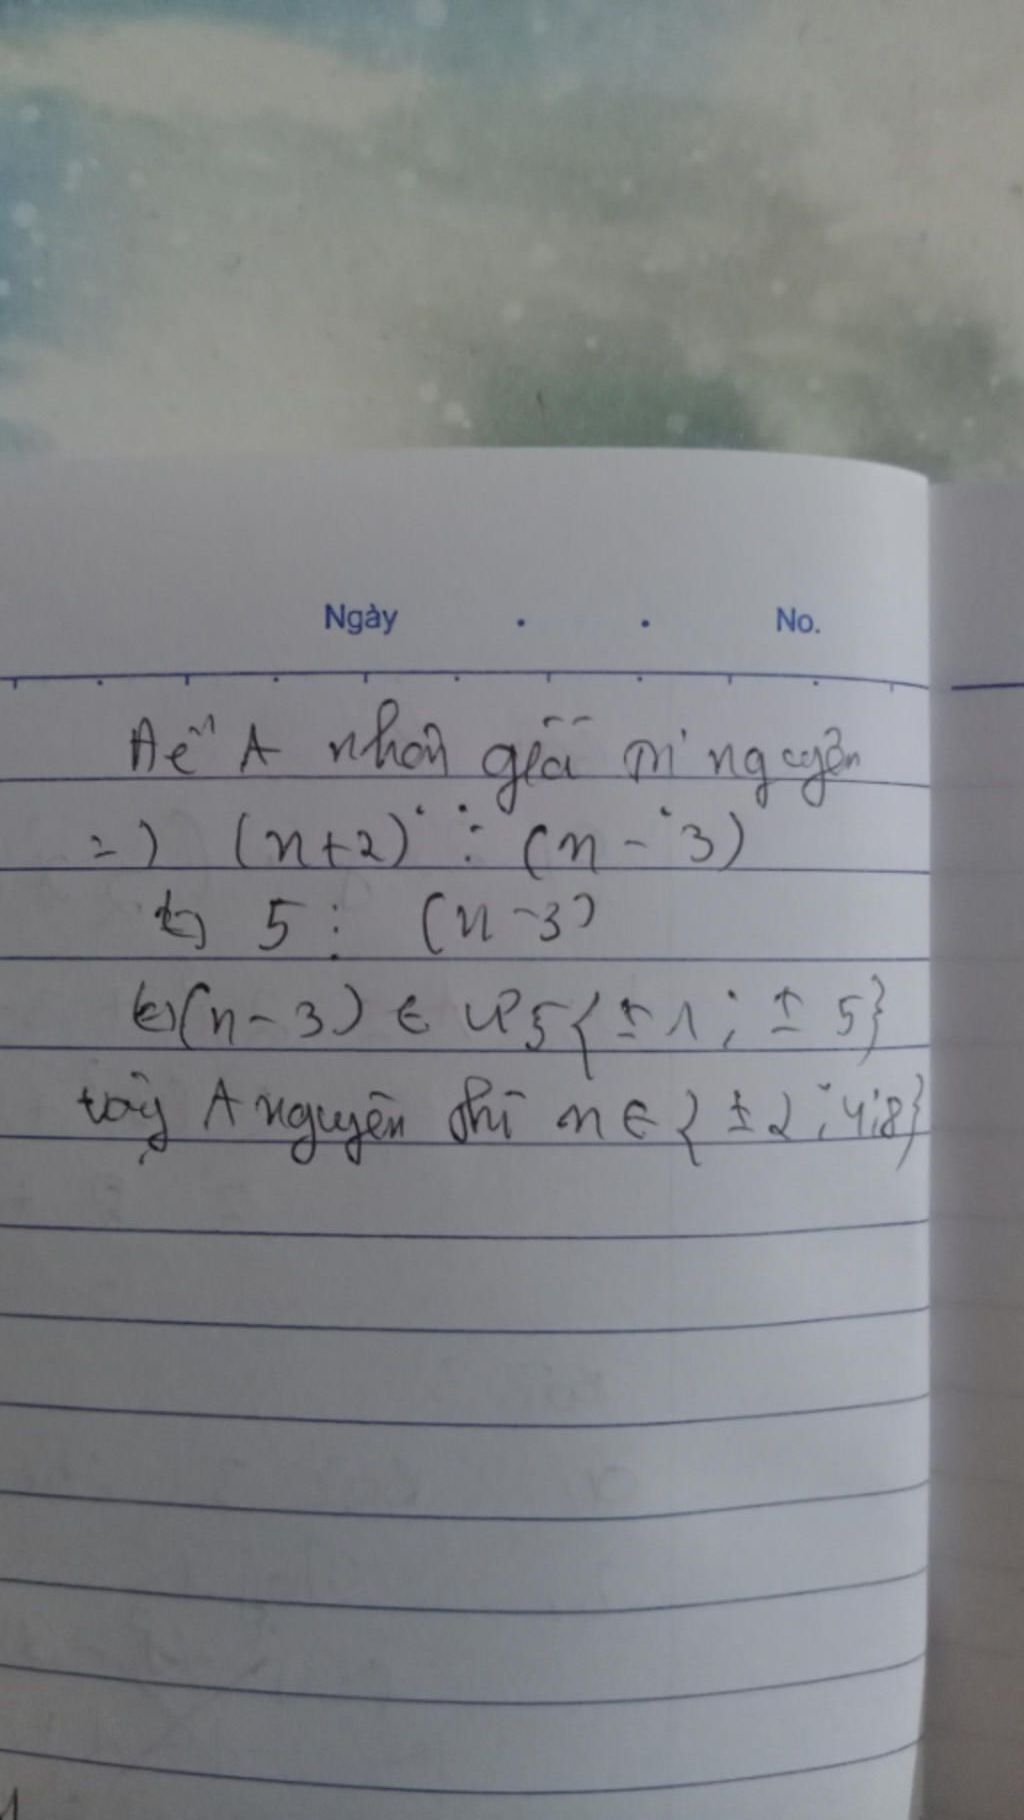 Ngày . . No.
Để A nhận giá trị nguyên
=) (n+2) ⋮ (n-3)
5 ⋮ (n-3)
(n-3) ∈ Ư5{±1; ±5}
Vậy A nguyên thì n∈{±2;4;8}